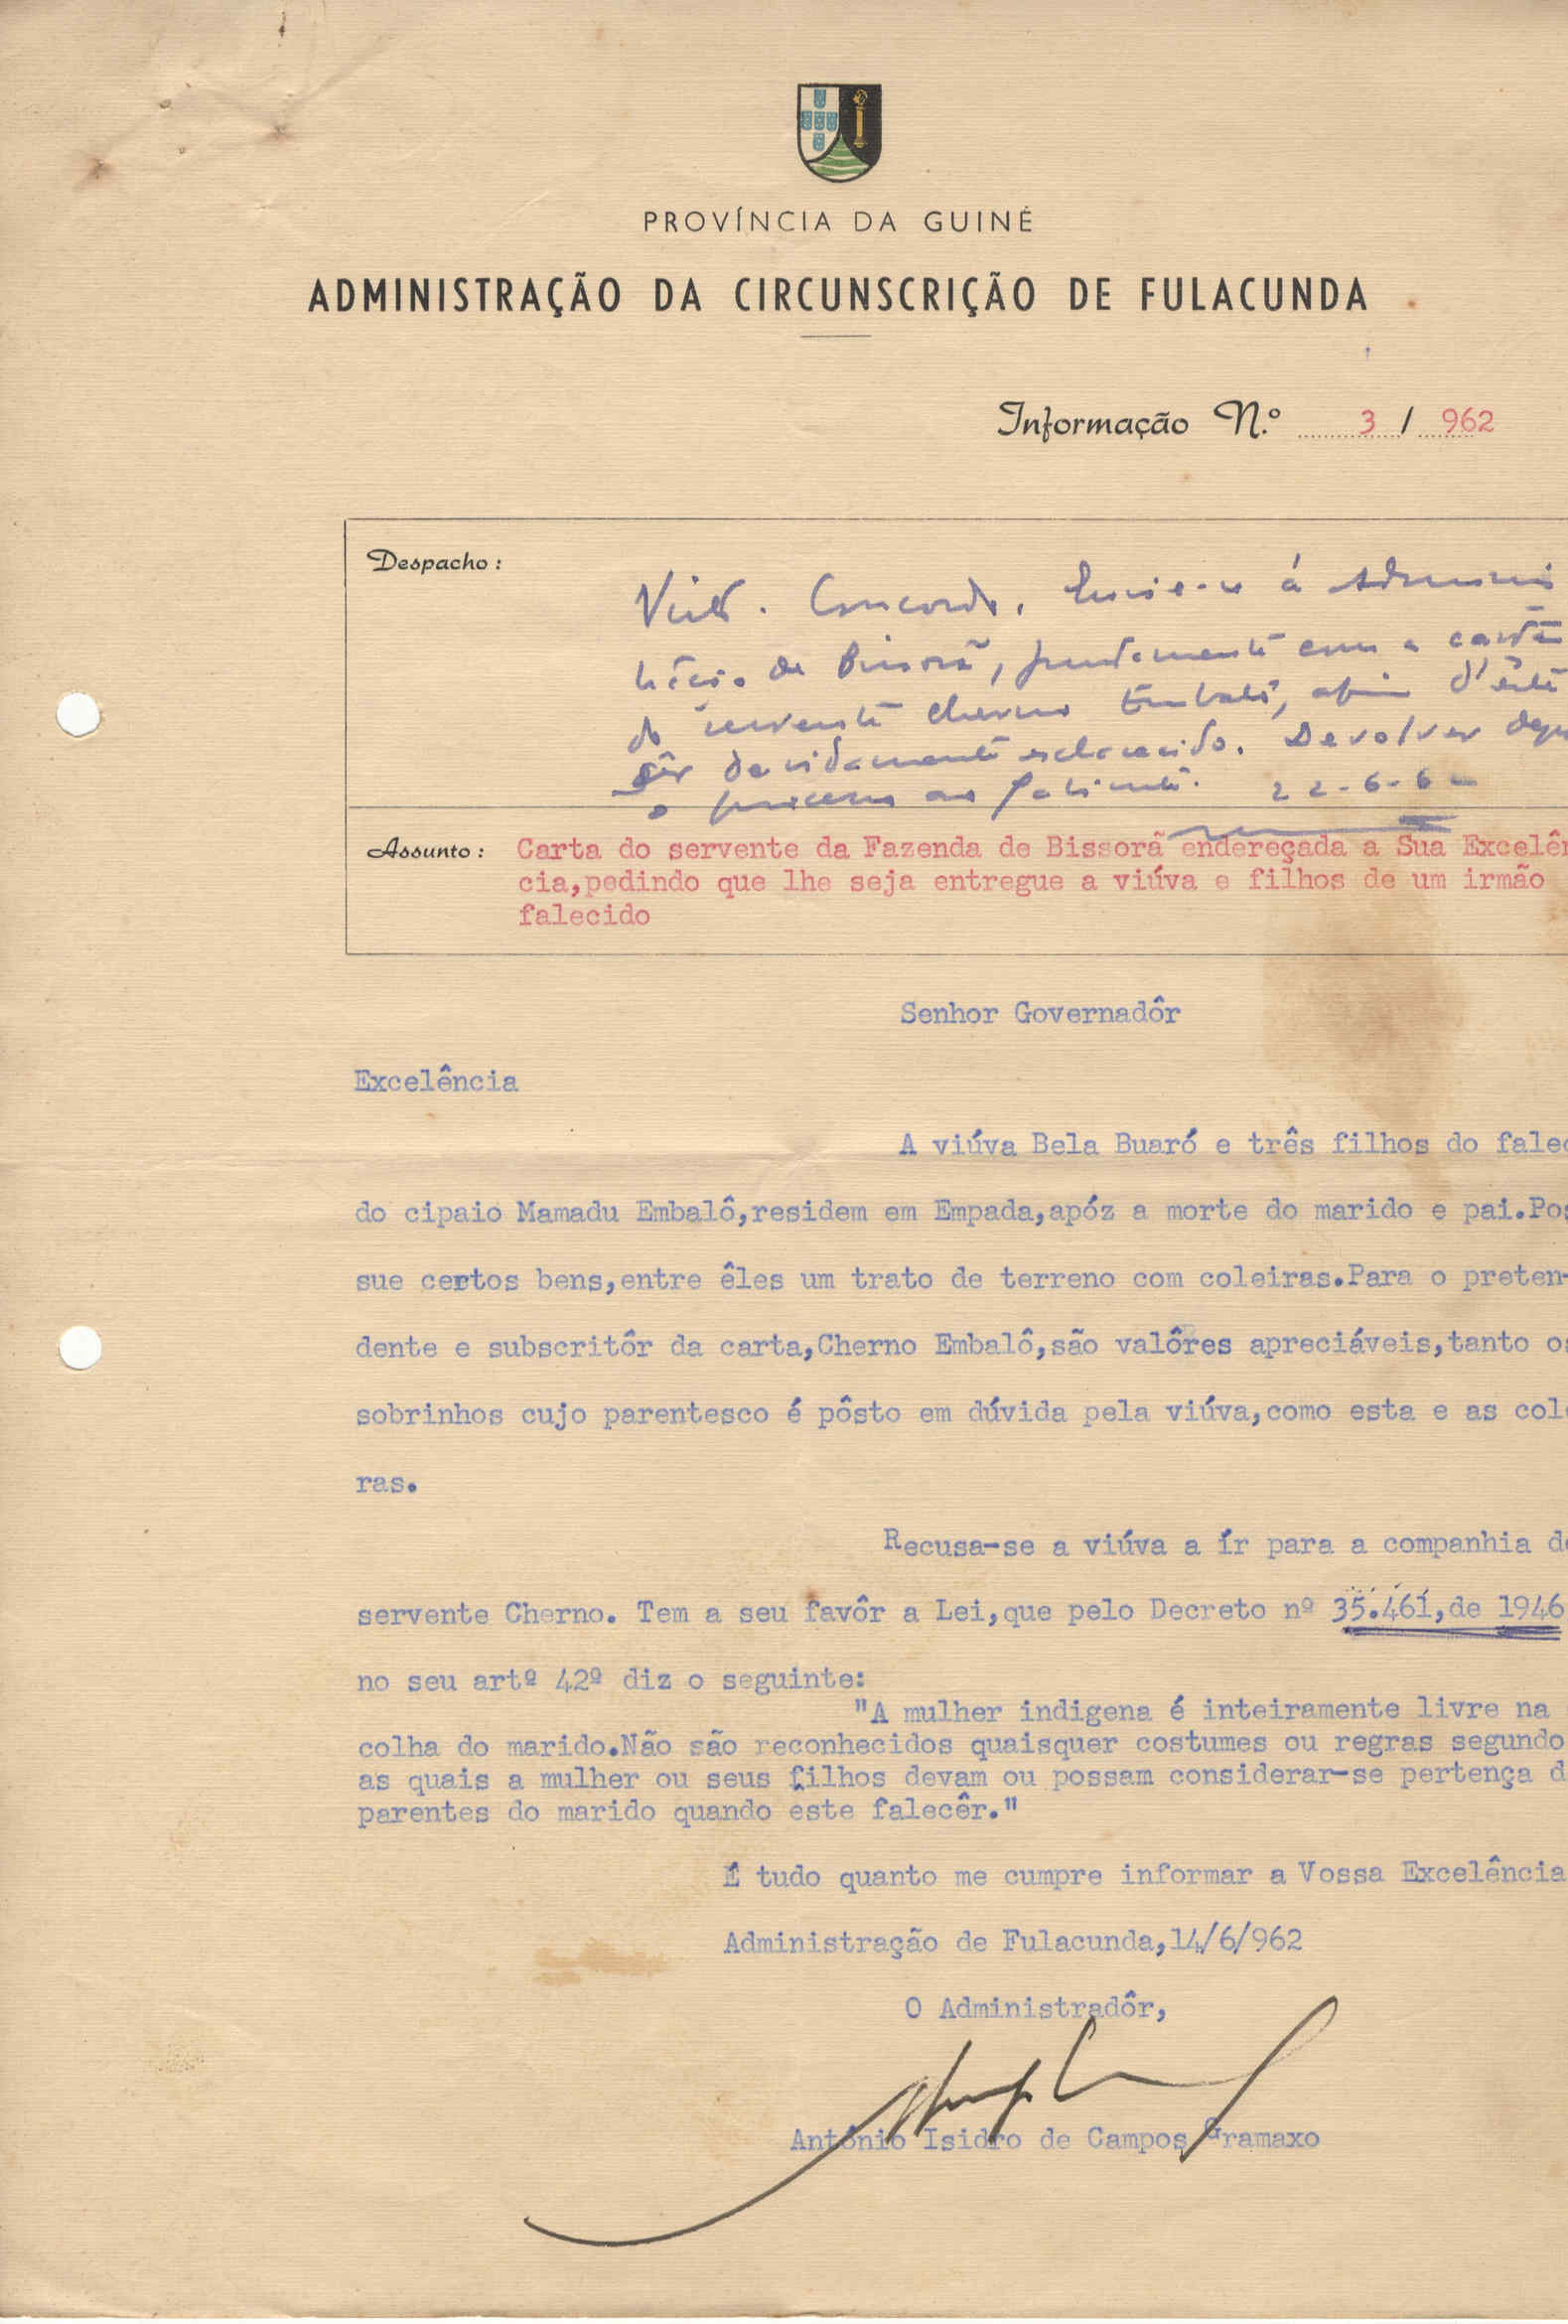 PROVÍNCIA DA GUINÉ
ADMINISTRAÇÃO DA CIRCUNSCRIÇÃO DE FULACUNDA
Informação N.º 3 / 962
Despacho :
Visto. Concordo. Envie-se á Adminis
de Bissorã, juntamente com a carta
do servente Cherno Embaló, afim d'êste
sêr devidamente esclarecido. Devolver depo
o processo ao Gabinete. 22-6-6
Assunto : Carta do servente da Fazenda de Bissorã endereçada a Sua Excelên
cia,pedindo que lhe seja entregue a viúva e filhos de um irmão
falecido
Senhor Governadôr
Excelência
A viúva Bela Buaró e três filhos do falec
do cipaio Mamadu Embalô,residem em Empada,apóz a morte do marido e pai.Pos
sue certos bens,entre êles um trato de terreno com coleiras.Para o preten-
dente e subscritôr da carta,Cherno Embalô,são valôres apreciáveis,tanto os
sobrinhos cujo parentesco é pôsto em dúvida pela viúva,como esta e as cole
ras.
Recusa-se a viúva a ír para a companhia do
servente Cherno. Tem a seu favôr a Lei,que pelo Decreto nº 35.461,de 1946
no seu artº 42º diz o seguinte:
"A mulher indigena é inteiramente livre na
colha do marido.Não são reconhecidos quaisquer costumes ou regras segundo
as quais a mulher ou seus filhos devam ou possam considerar-se pertença d
parentes do marido quando êste falecêr."
É tudo quanto me cumpre informar a Vossa Excelência
Administração de Fulacunda,14/6/962
O Administradôr,
António Isidro de Campos Gramaxo